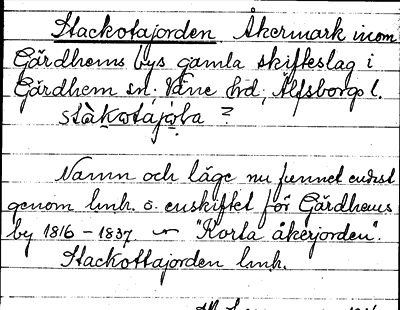 Stackotajorden Åkermark inom
Gärdhems bys gamla skifteslag i
Gärdhem sn, Väne hd, Älfsborgs l.
stàkotájoᶉa ?
Namn och läge nu funnet endast
genom lmh. o. enskiftet för Gärdhems
by 1816 - 1837 ~ "Korta åkerjorden".
Stackottajorden lmh.